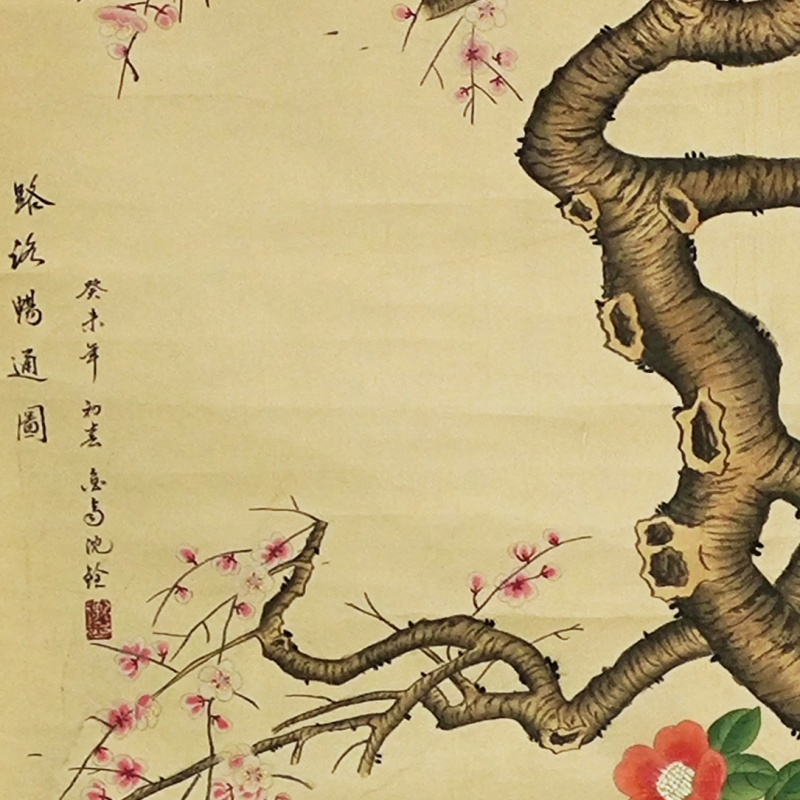 路路暢通圖
癸未年初沈銓